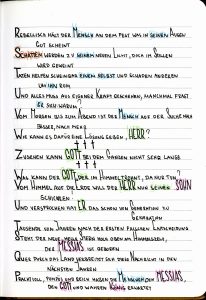 Rebellisch hält der Mensch an dem fest was in seinen Augen
gut scheint
Schatten werden zu seinem neuen Licht, doch im Stillen
wird geweint
Taten helfen scheinbar einem selbst und schaden anderen
Und alles muss aus eigener Kraft geschehen, manchmal fragt
er sich warum?
Vom Morgen bis zum Abend ist des Mensch auf der Suche nach
Besser, nach mehr
Wie kann es dafür eine Lösung geben, HERR?
Zusehen kann GOTT bei dem Ganzen nicht sehr lange
Was kann der GOTT der im Himmel thront, da nur tun?
Vom Himmel auf die Erde will der HERR nun seinen SOHN
schicken
Und versprochen hat ER das schon von Generation zu
Generation
Tausende von Jahren nach der ersten Falschen Entscheidung
steht der neue helle Stern hoch oben am Himmelszelt,
der MESSIAS ist geboren
Quer durch das Land verbreitet sich diese Nachricht in den
nächsten Jahren
Prachtvoll, pompös und reich haben die Menschen den MESSIAS,
den GOTT und wahren König erwartet